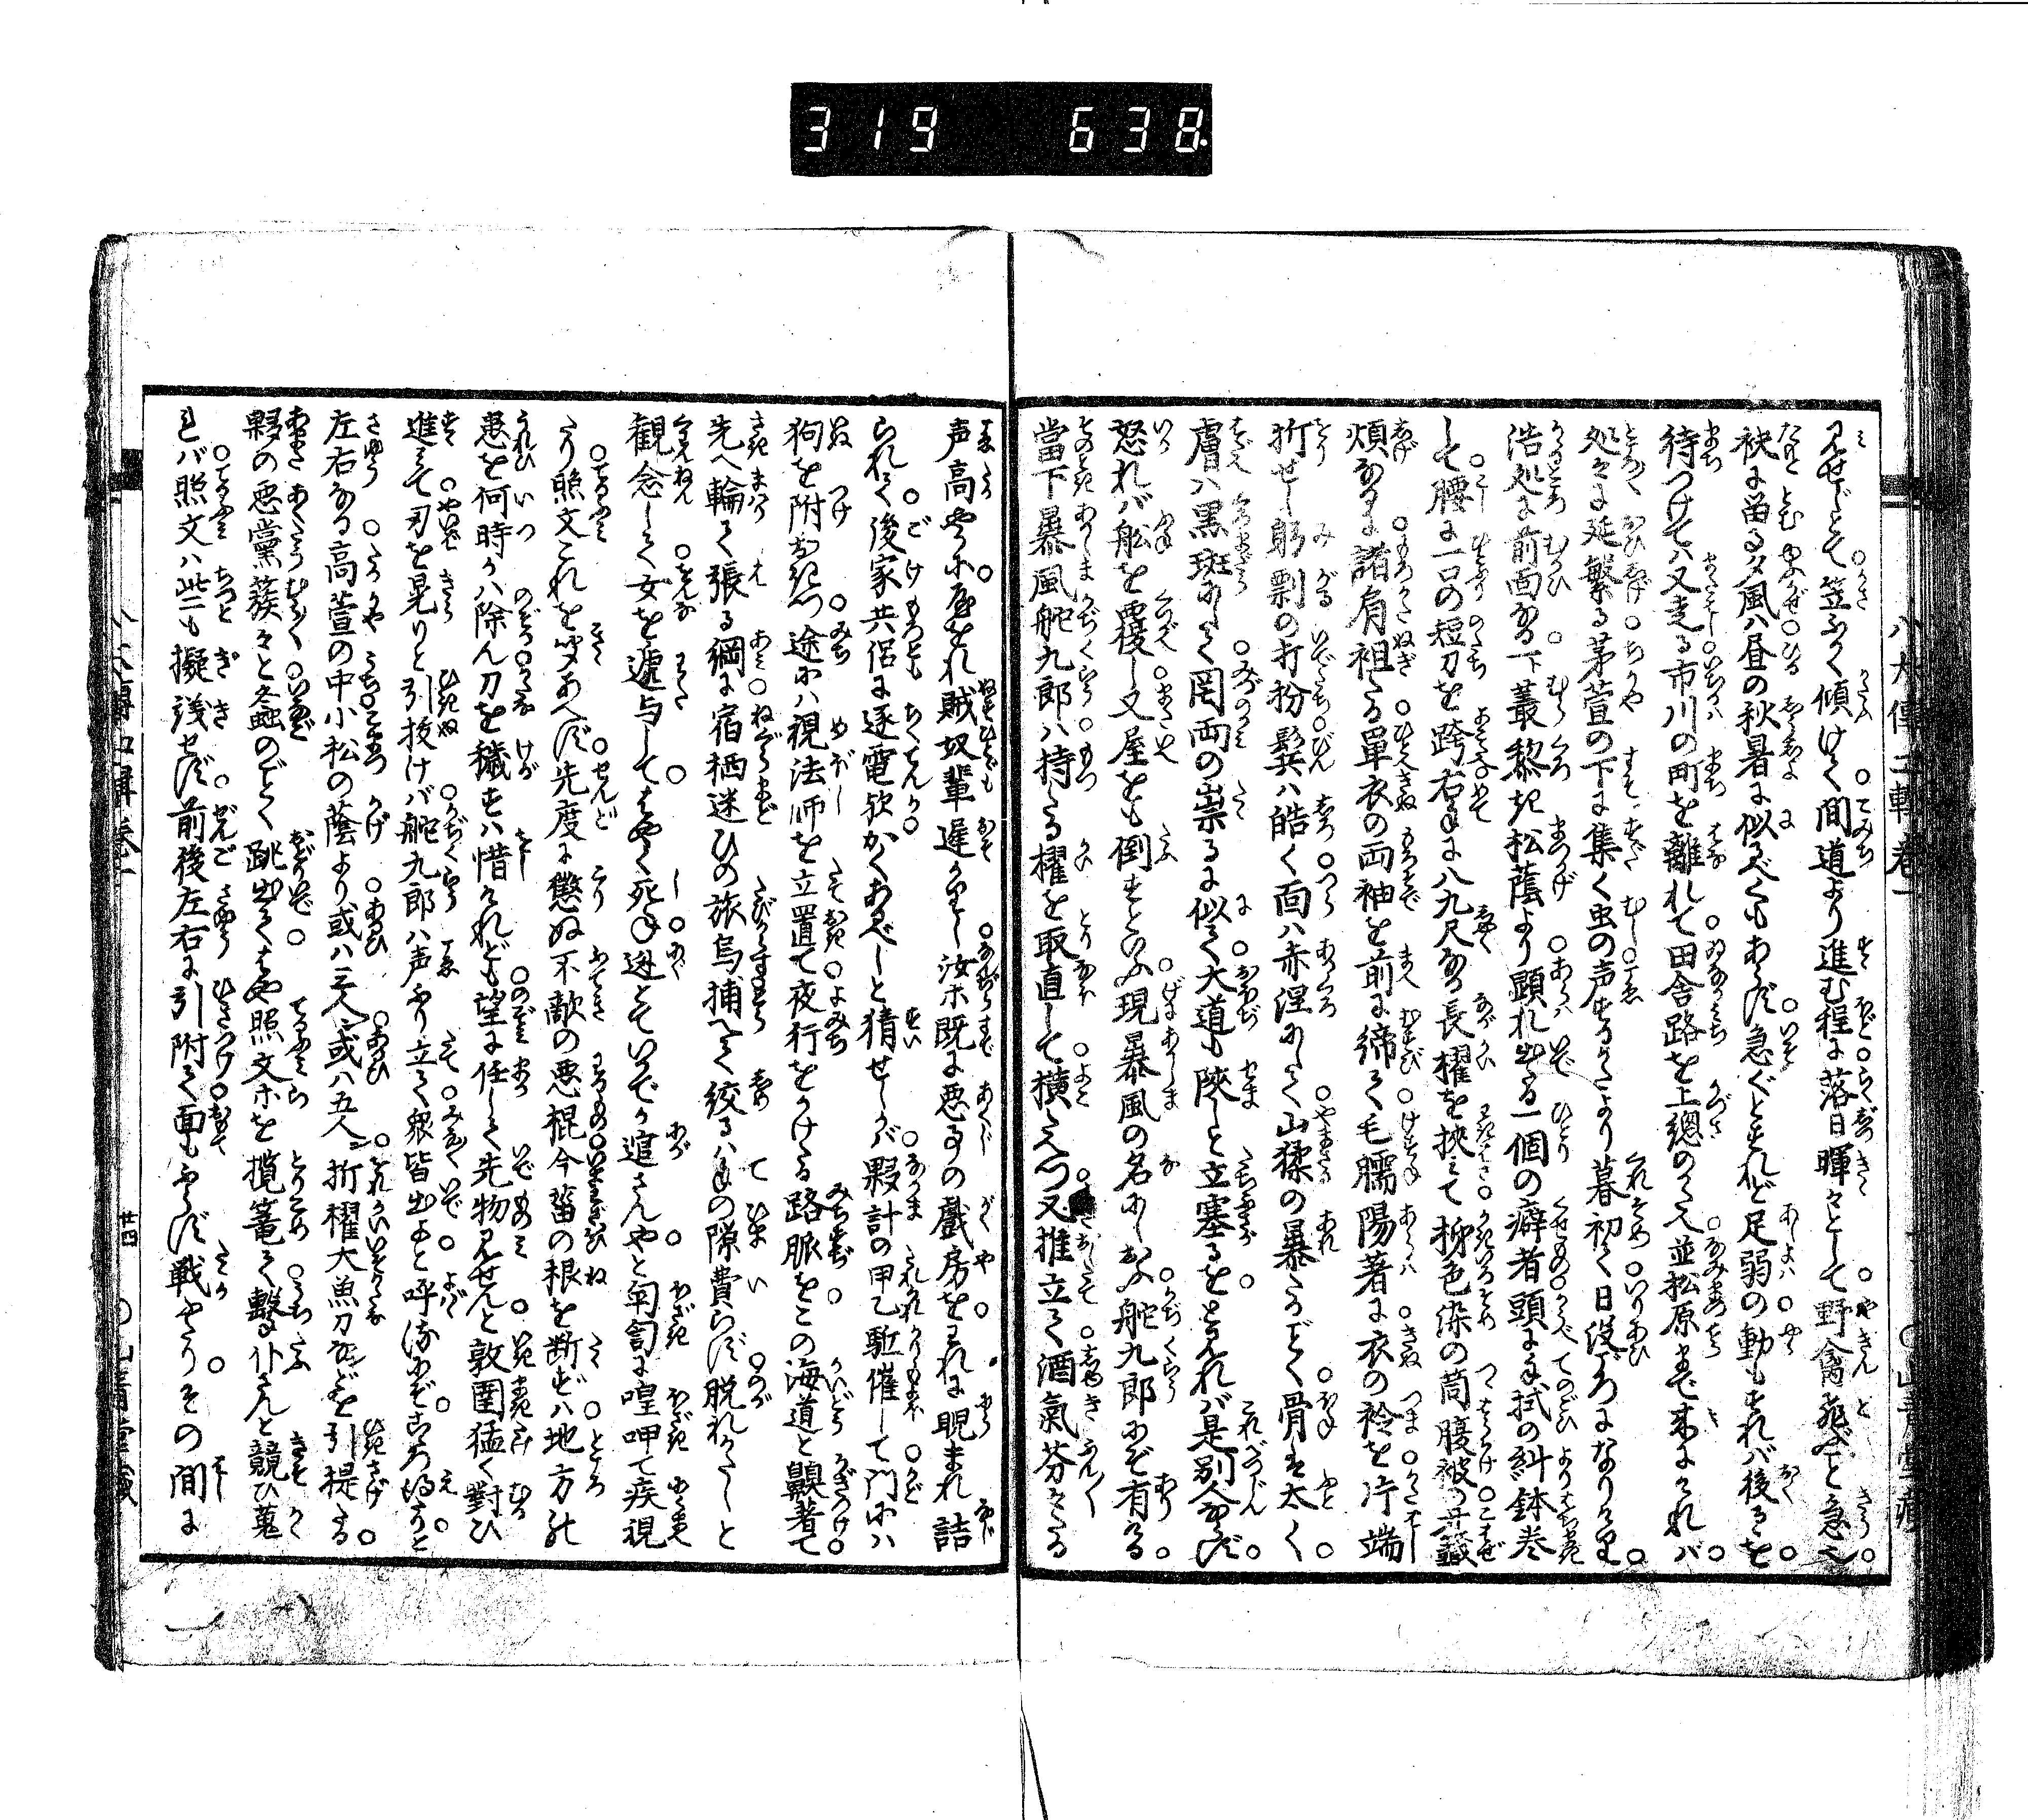 319 638
見せじとて笠ふかく傾けて間道より進む程に落日暉々として野禽飛で急し
袂に留る夕風ハ昼の秋暑に似るべくもあらず急ぐとすれど足弱の動もすれバ後るを
待つけてハ又走る市川の町を離れて田舎路を上總のかた並松原まで来にけれバ
処々に延繁る茅萱の下に集く虫の声するかたより暮初て日没ごろになりにけり
浩処に前面なる下叢黎き松蔭より顕れ出たる一個の癖者頭に手拭の糾鉢巻
して腰に一口の短刀を跨右手に八九尺なる長櫂を挾みて柳色染の筒腹被
煩なるに諸肩袒たる單衣の両袖を前に締て毛臑陽著に衣の裣を片端
折せし躬剽の打扮鬂ハ皓く面ハ赤涅にして山猱の暴たるごとく骨逞太く
膚ハ黒斑にして罔両の祟るに似て大道も陜しと立塞るをと見れバ是別人ならず
怒れバ舩を覆し又屋をも倒すといふ現暴風の名にしおふ舵九郎にぞ有ける
當下暴風舵九郎ハ持たる櫂を取直して横たへつ又推立て酒氣芬々たる
声高やかに屋をれ賊奴輩遅かりし汝ホ既に悪事の戯房をわれに睨まれ詰
られて後家共侶に逐電欤かくあるべしと猜せしかバ夥計の甲乙駈催して門にハ
狗を附おきつ途にハ視法師を立置て夜行をかけたる路脈をこの海道と齅著て
先へ輪て張る綱に宿栖迷ひの旅烏捕へて絞るハ手の隙費らず脱れかたしと
観念して女を遞与してはやく死ね迯とていかでか追さんやと匉訇に喤呷て疾視
たり照文これを聞あへず先度に懲ぬ不敵の悪棍今畨の根を断ずハ地方の
患を何時かハ除ん刀を穢すハ惜けれども望に任して先物見せんと敦圉猛く對ひ
進みて刃を晃りと引抜けバ舵九郎ハ声ふり立て衆皆出よと呼るにぞこゝろ得たりと
左右なる高萱の中小松の蔭より或ハ三人或ハ五人折櫂大魚刀などを引提たる
夥の悪黨簇々と螽のごとく跳出てはや照文ホを攬篭て撃仆さんと競ひ蒐
れバ照文ハ些も擬議せず前後左右に引附て面もふらず戦ふたりその間に
八犬傳二輯巻
廿四